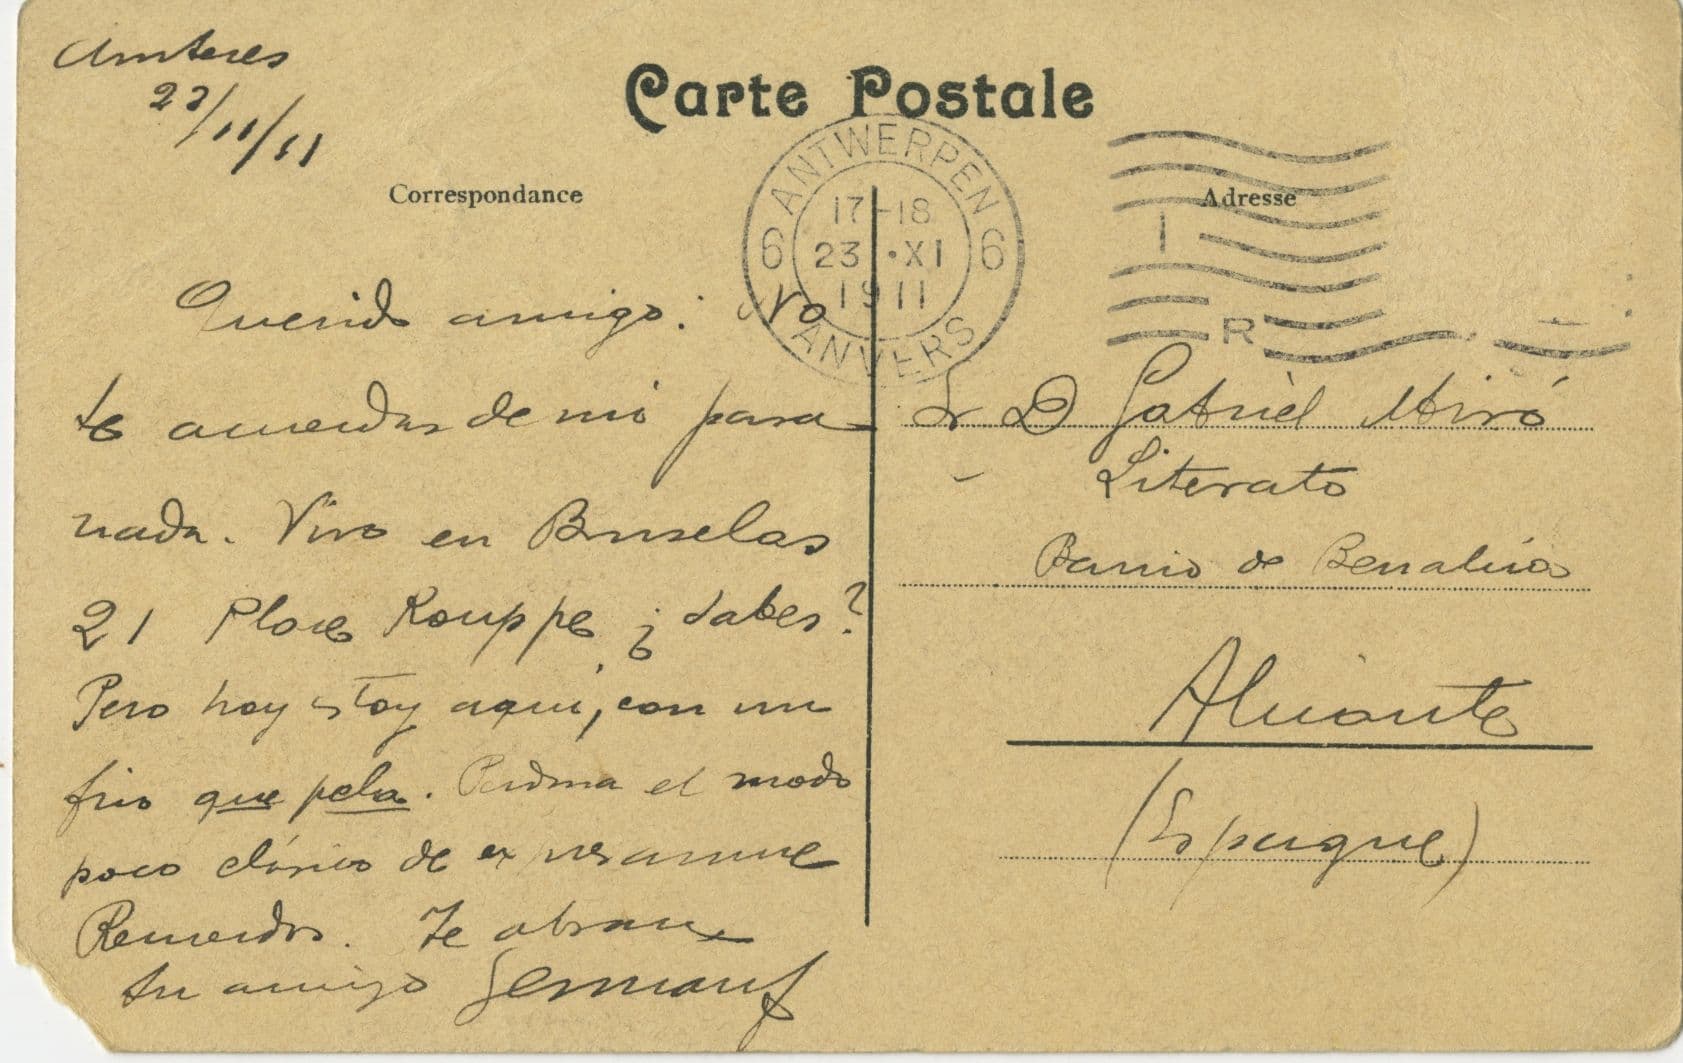 Amberes
23/11/11
Carte Postale
Correspondance
Adresse
ANTWERPEN
6 6
17-18
23 · XI
1911
ANVERS
Querido amigo: No
te acuerdas de mi para
nada. Vivo en Bruselas
21 Place Rouppe ¿sabes?
Pero hoy estoy aquí, con un
frio que pela. Perdona el modo
poco clásico de expresarme
Recuerdos. Te abraza
tu amigo
Sr D Gabriel Miró
Literato
Barrio de Benalúa
Alicante
(Espagne)